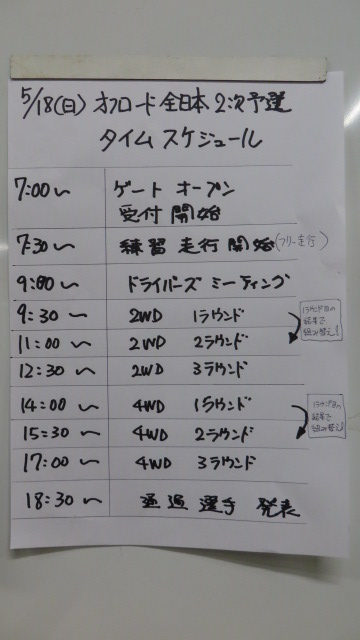 5/18(日) オフロード全日本2次予選
タイムスケジュール
7:00〜 ゲートオープン
受付開始
7:30〜 練習走行開始(フリー走行)
9:00〜 ドライバーズミーティング
9:30〜 2WD 1ラウンド
11:00〜 2WD 2ラウンド
12:30〜 2WD 3ラウンド
14:00〜 4WD 1ラウンド
15:30〜 4WD 2ラウンド
17:00〜 4WD 3ラウンド
18:30〜 通過選手 発表
1ラウンド目の
結果で
組み替え!
1ラウンド目の
結果で
組み替え!